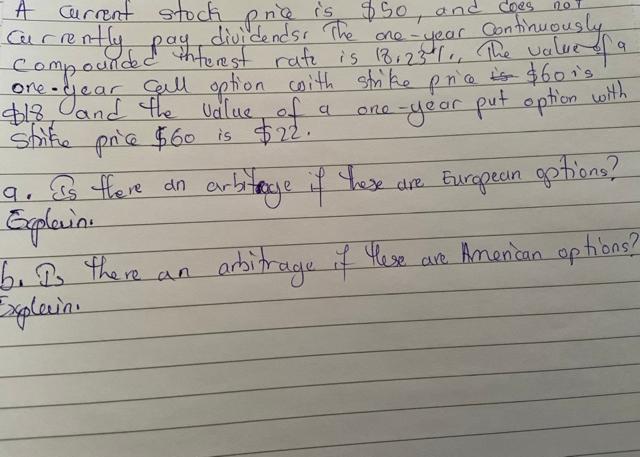 A current stock price is $50, and does not
currently pay dividends. The one-year continuously
compounded interest rate is 18.23%. The value of a
one-year call option with strike price is $60 is
$18, and the value of a one-year put option with
strike price $60 is $22.
a. Is there an arbitrage if these are European options?
Explain.
b. Is there an arbitrage if these are American options?
Explain.